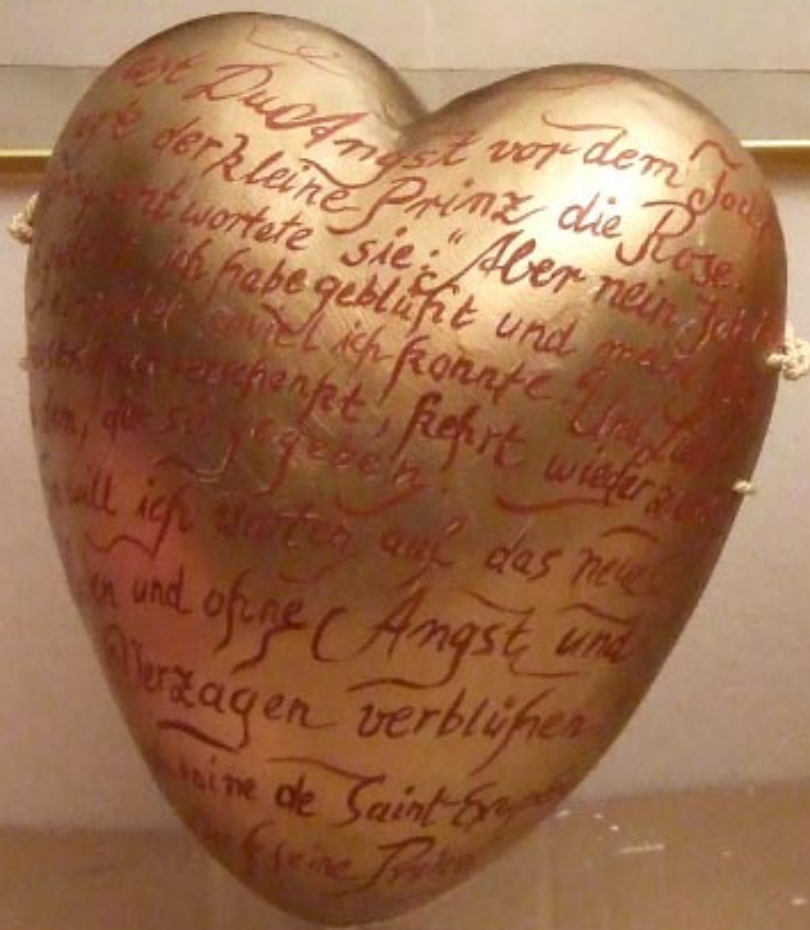 ast Du Angst vor dem Tod
der kleine Prinz die Rose.
antwortete sie: "Aber nein. Ich
ich habe geblüht und mein
soviel ich konnte. Und Lie
verschenkt, kehrt wieder zu
den, die sie gegeben.
will ich warten auf das neue
en und ohne Angst und
Verzagen verblühen
oine de Saint-Exup
kleine Prinz